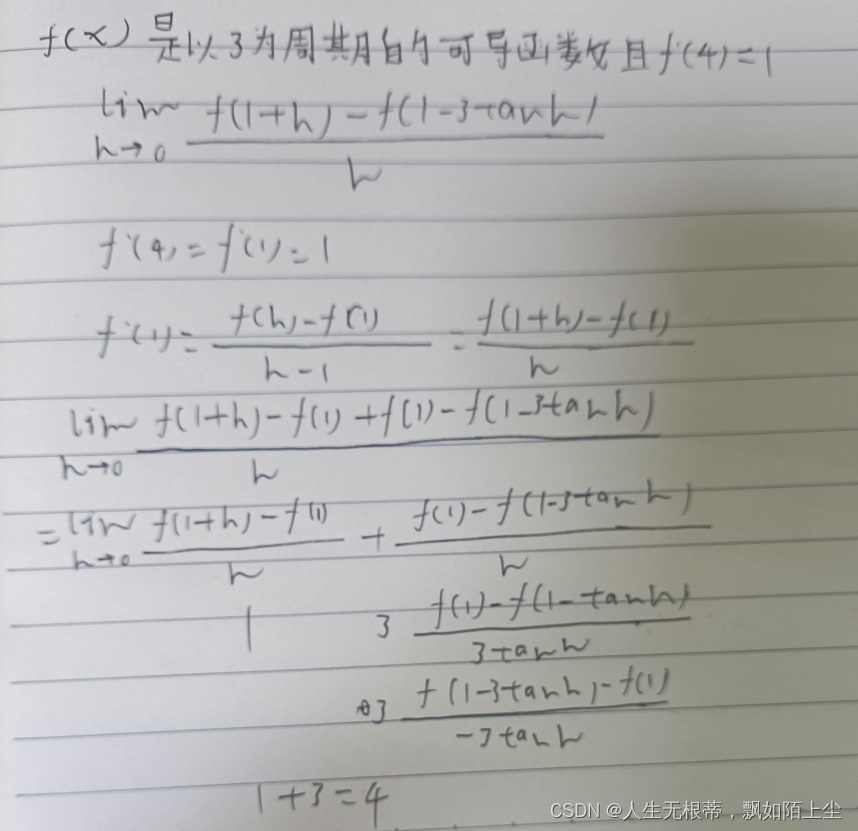 f(x) 是以3为周期的可导函数且 f'(4)=1
lim h→0 (f(1+h)-f(1-3tanh))/h
f'(4)=f'(1)=1
f'(1)= (f(h)-f(1))/(h-1) = (f(1+h)-f(1))/h
lim h→0 (f(1+h)-f(1)+f(1)-f(1-3tanh))/h
=lim h→0 (f(1+h)-f(1))/h + (f(1)-f(1-3tanh))/h
1 3 (f(1)-f(1-tanh))/(3tanh)
3 (f(1-3tanh)-f(1))/(-3tanh)
1+3=4
CSDN @人生无根蒂，飘如陌上尘